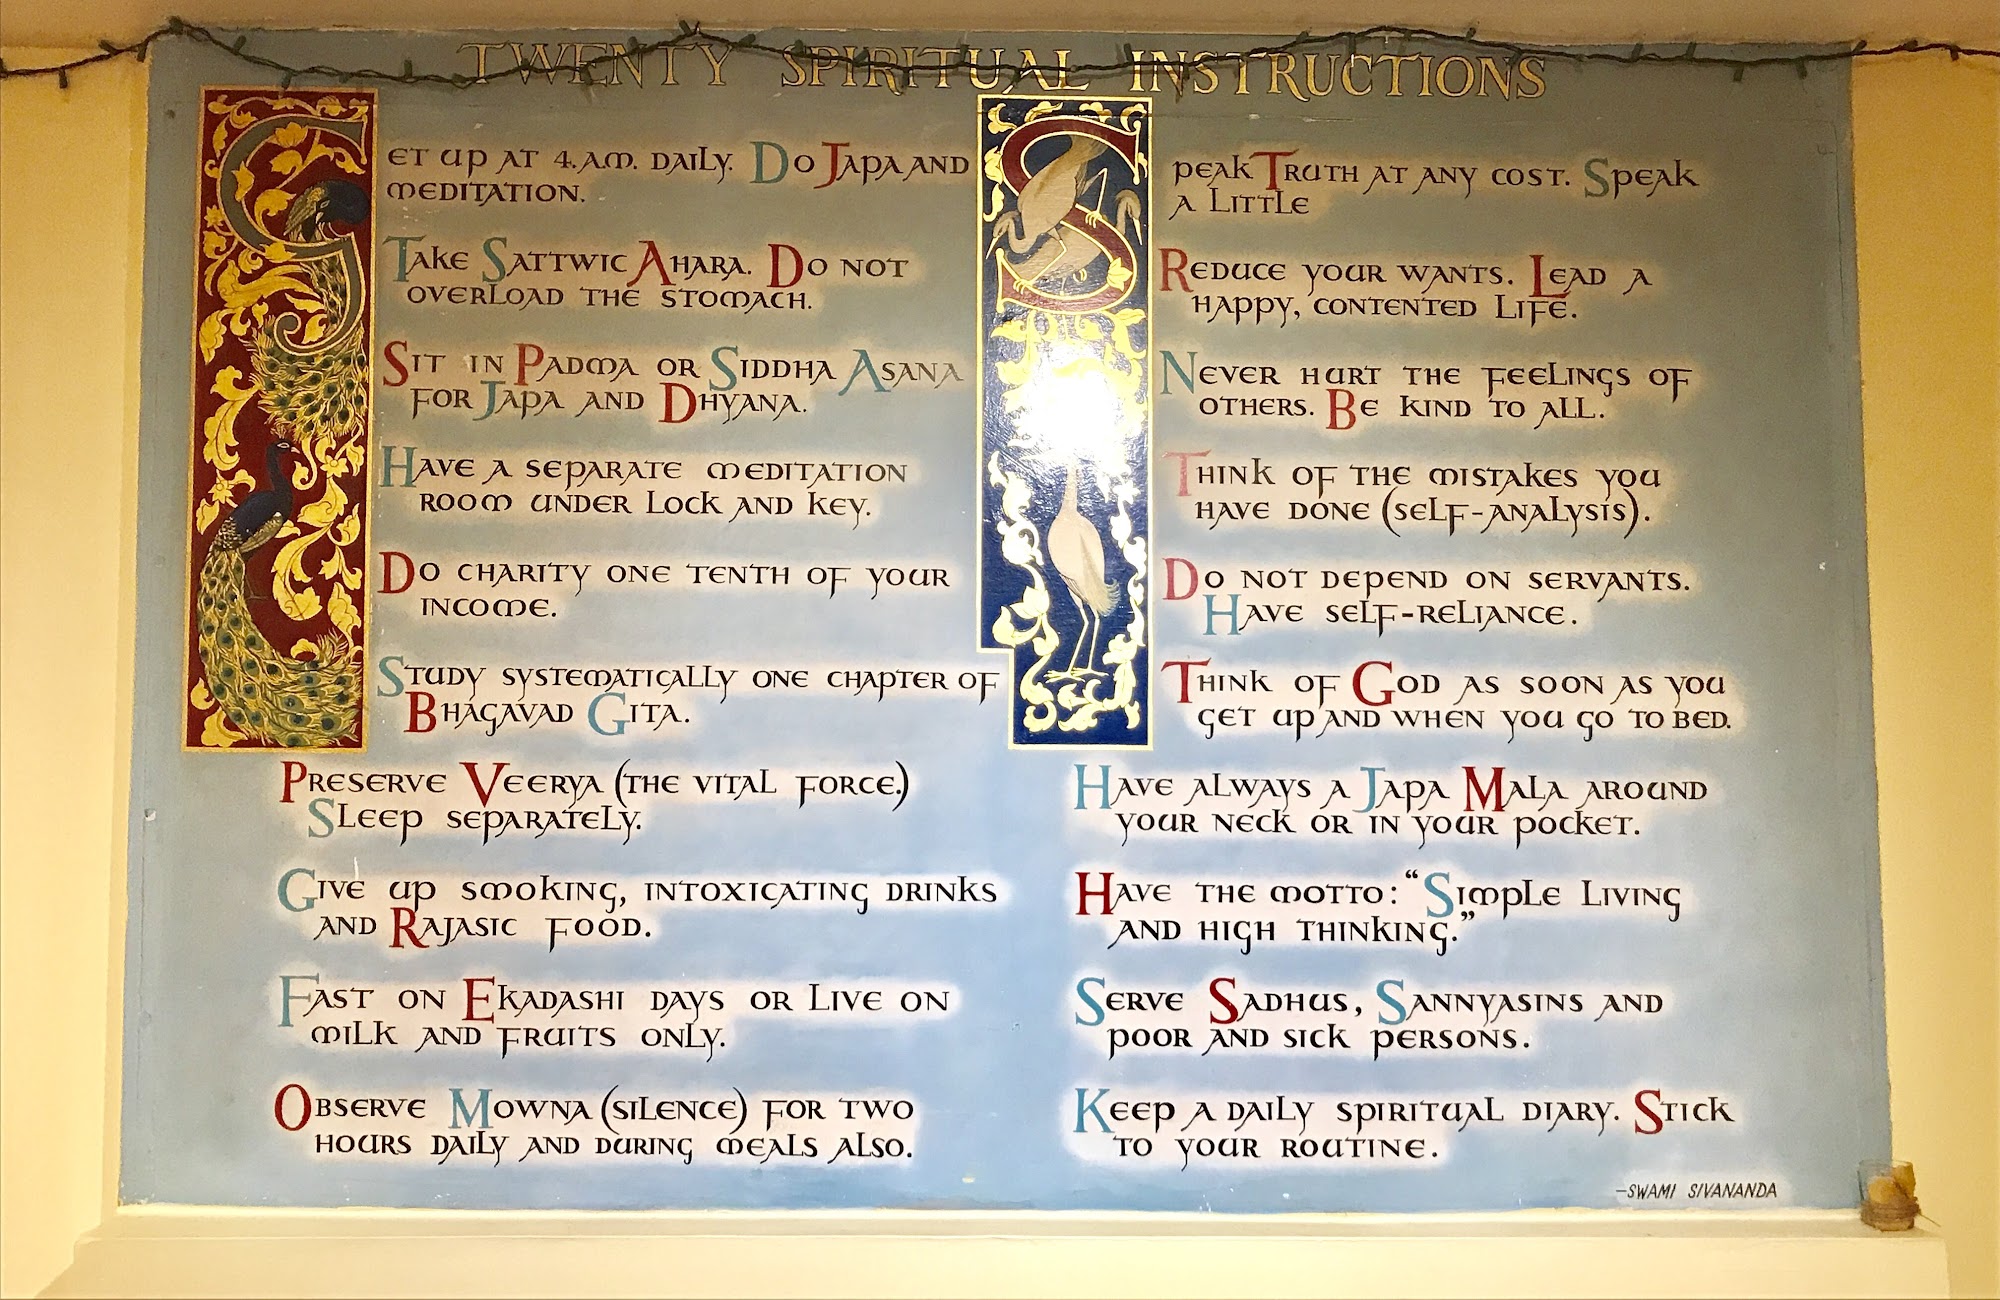 TWENTY SPIRITUAL INSTRUCTIONS
GET UP AT 4.AM. DAILY. DO JAPA AND
MEDITATION.
TAKE SATTWIC AHARA. DO NOT
OVERLOAD THE STOMACH.
SIT IN PADMA OR SIDDHA ASANA
FOR JAPA AND DHYANA.
HAVE A SEPARATE MEDITATION
ROOM UNDER LOCK AND KEY.
DO CHARITY ONE TENTH OF YOUR
INCOME.
STUDY SYSTEMATICALLY ONE CHAPTER OF
BHAGAVAD GITA.
PRESERVE VEERYA (THE VITAL FORCE.)
SLEEP SEPARATELY.
GIVE UP SMOKING, INTOXICATING DRINKS
AND RAJASIC FOOD.
FAST ON EKADASHI DAYS OR LIVE ON
MILK AND FRUITS ONLY.
OBSERVE MOWNA (SILENCE) FOR TWO
HOURS DAILY AND DURING MEALS ALSO.
SPEAK TRUTH AT ANY COST. SPEAK
A LITTLE
REDUCE YOUR WANTS. LEAD A
HAPPY, CONTENTED LIFE.
NEVER HURT THE FEELINGS OF
OTHERS. BE KIND TO ALL.
THINK OF THE MISTAKES YOU
HAVE DONE (SELF-ANALYSIS).
DO NOT DEPEND ON SERVANTS.
HAVE SELF-RELIANCE.
THINK OF GOD AS SOON AS YOU
GET UP AND WHEN YOU GO TO BED.
HAVE ALWAYS A JAPA MALA AROUND
YOUR NECK OR IN YOUR POCKET.
HAVE THE MOTTO: "SIMPLE LIVING
AND HIGH THINKING."
SERVE SADHUS, SANNYASINS AND
POOR AND SICK PERSONS.
KEEP A DAILY SPIRITUAL DIARY. STICK
TO YOUR ROUTINE.
—SWAMI SIVANANDA